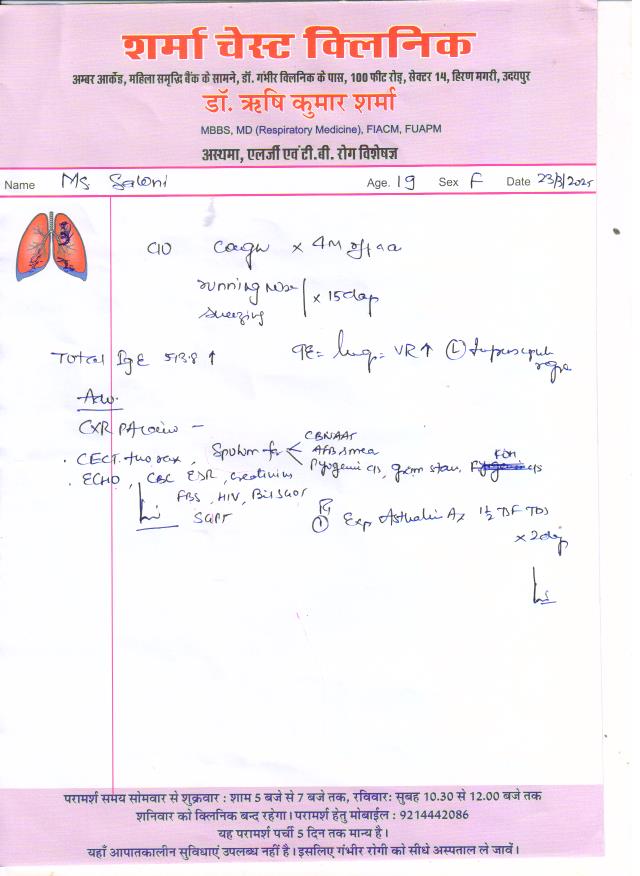 शर्मा चेस्ट क्लिनिक
अम्बर आर्केड, महिला समृद्धि बैंक के सामने, डॉ. गंभीर क्लिनिक के पास, 100 फीट रोड़, सेक्टर 14, हिरण मगरी, उदयपुर
डॉ. ऋषि कुमार शर्मा
MBBS, MD (Respiratory Medicine), FIACM, FUAPM
अस्थमा, एलर्जी एवं टी.बी. रोग विशेषज्ञ
Name Ms Saloni Age. 19 Sex F Date 23/3/2025
C/O Cough x 4M off & on
running nose
sneezing x 15 days
Total IgE 513.8 ↑
O/E = lung = VR ↑ (L)
Adv.
CXR PA view -
. CECT thorax, Sputum for < CBNAAT
AFB smear
Pyogenic c/s, gram stain, c/s
. ECHO, CBC ESR, Creatinine
FBS, HIV, Bil SGOT
SGPT
Rx
① Exp Asthalin Ax 1½ TSF TDS
x 2 days
परामर्श समय सोमवार से शुक्रवार : शाम 5 बजे से 7 बजे तक, रविवार: सुबह 10.30 से 12.00 बजे तक
शनिवार को क्लिनिक बन्द रहेगा। परामर्श हेतु मोबाईल : 9214442086
यह परामर्श पर्ची 5 दिन तक मान्य है।
यहाँ आपातकालीन सुविधाएं उपलब्ध नहीं है। इसलिए गंभीर रोगी को सीधे अस्पताल ले जावें।